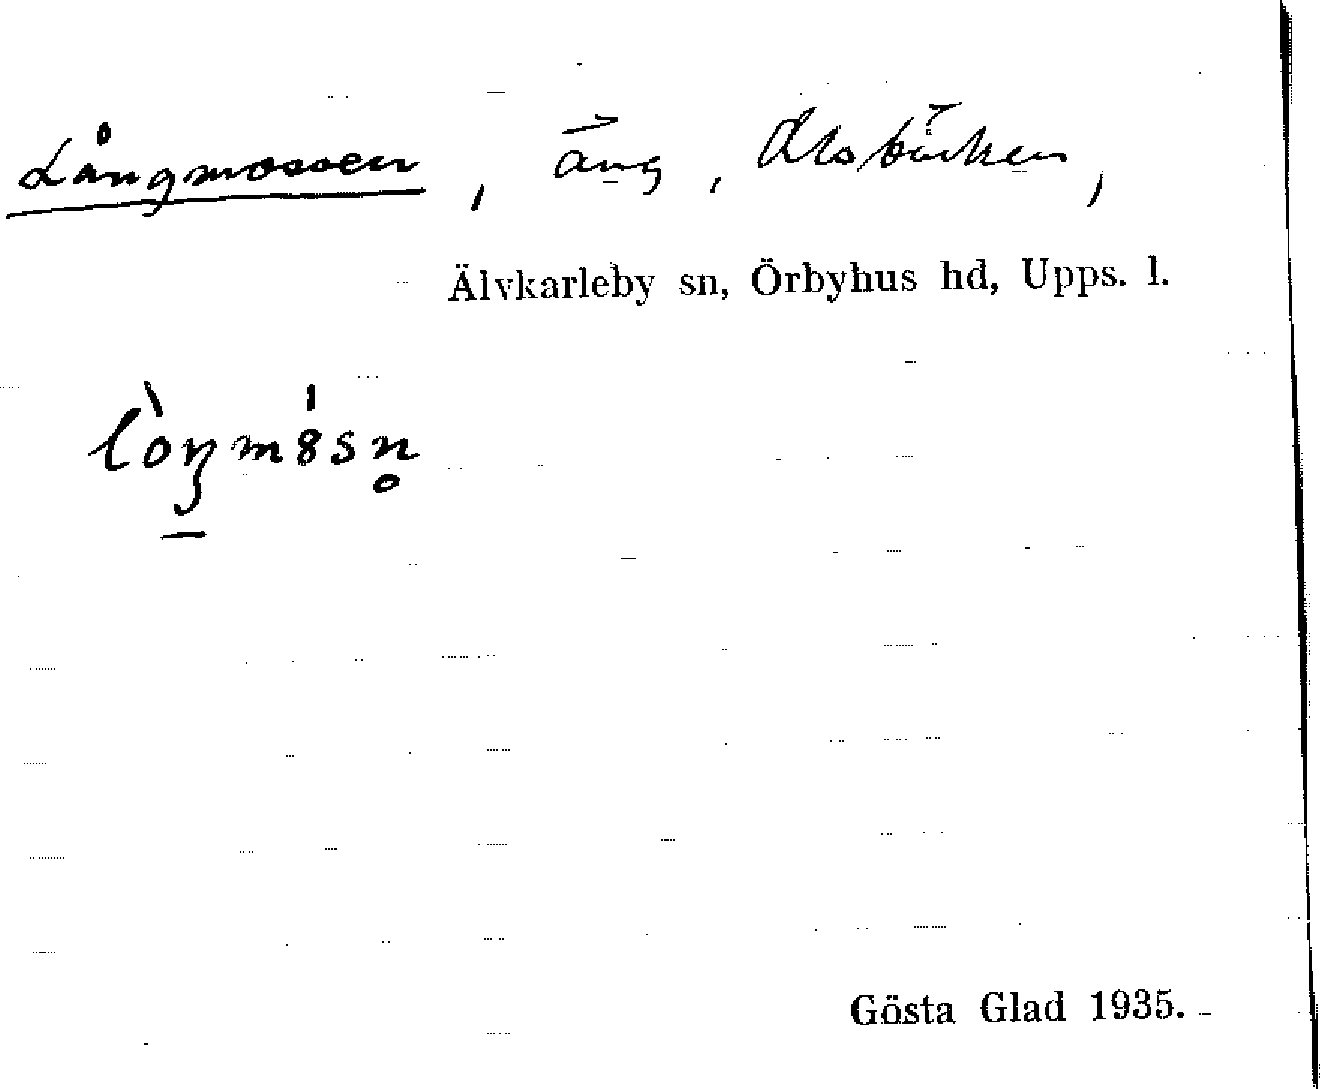 Långmossen, äng,
Älvkarleby sn, Örbyhus hd, Upps. l.
lòŋm8́sn̥
Gösta Glad 1935.